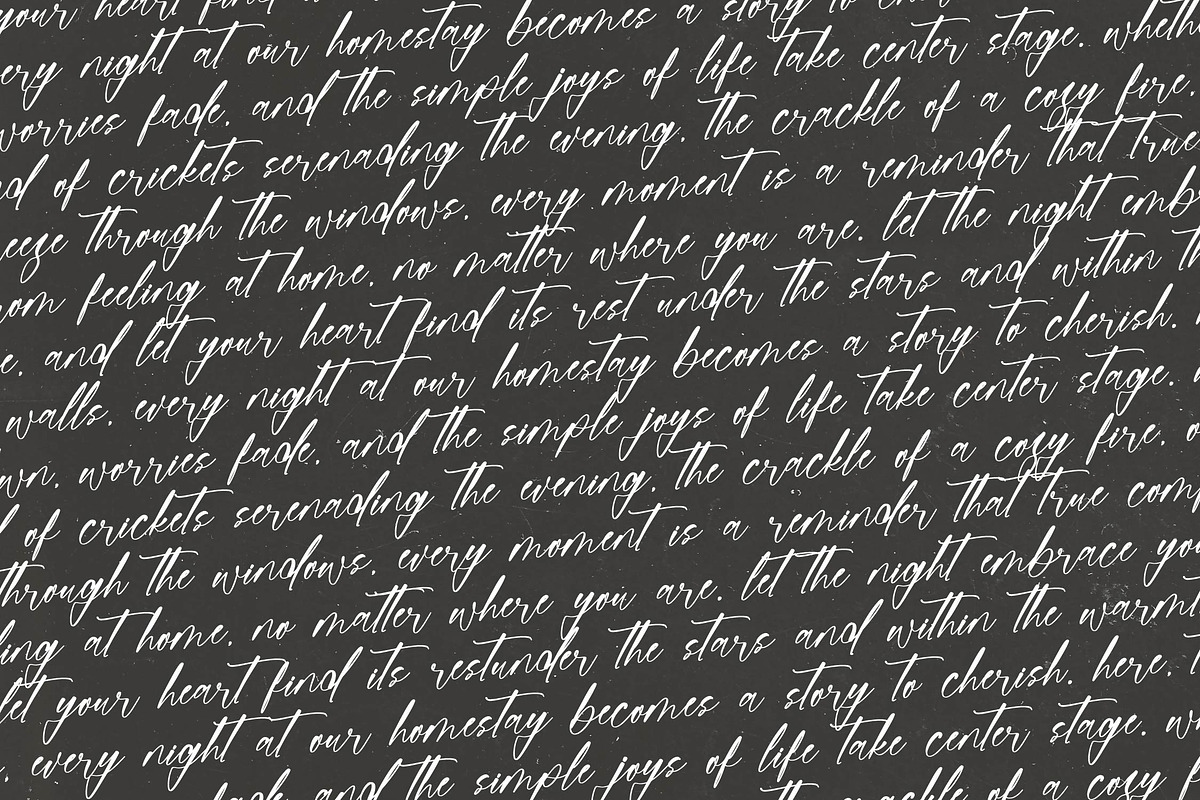 your heart find
every night at our homestay becomes a story to
worries fade. and the simple joys of life take center stage. wheth
nd of crickets serenading the evening. the crackle of a cozy fire.
eeze through the windows. every moment is a reminder that true
rom feeling at home. no matter where you are. let the night emb
e. and let your heart find its rest under the stars and within th
walls. every night at our homestay becomes a story to cherish.
wn. worries fade. and the simple joys of life take center stage.
d of crickets serenading the evening. the crackle of a cozy fire. o
through the windows. every moment is a reminder that true com
ling at home. no matter where you are. let the night embrace you
let your heart find its restunder the stars and within the warm
. every night at our homestay becomes a story to cherish. here.
fade. and the simple joys of life take center stage. wh
the crackle of a cozy f